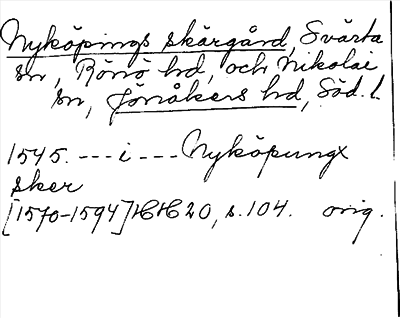 Nyköpings skärgård, Svärta
sn, Rönö hd, och Nikolai
sn, Jönåkers hd, Söd. l.
1545. --- i --- Nyköpungx
sker
[1570-1594] HH 20, s. 104. orig.